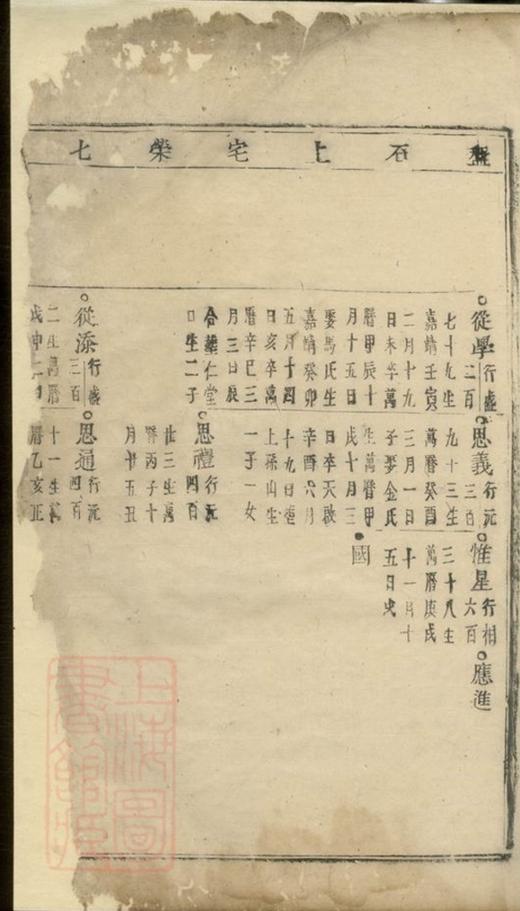 盤石上宅榮七
從學行盛
二百
七十九生
嘉靖壬寅
二月十九
日未卒萬
曆甲辰十
月十五日
娶馬氏生
嘉靖癸卯
五月十四
日亥卒萬
曆辛巳三
月三日辰
合葬仁堂
口生二子
從添行盛
三百
二生萬曆
戊申二月
思義行元
三百
九十三生
萬曆癸酉
三月一日
子娶金氏
生萬曆甲
戌十月三
日卒天啟
辛酉六月
十九日
上孫山生
一子一女
思禮行元
四百
廿三生萬
曆丙子十
月廿五丑
思通行元
四百
十一生萬
曆乙亥正
惟星行相
六百
三十八生
萬曆庚戌
十一月十
五日戌
國
應進
上海圖書館藏